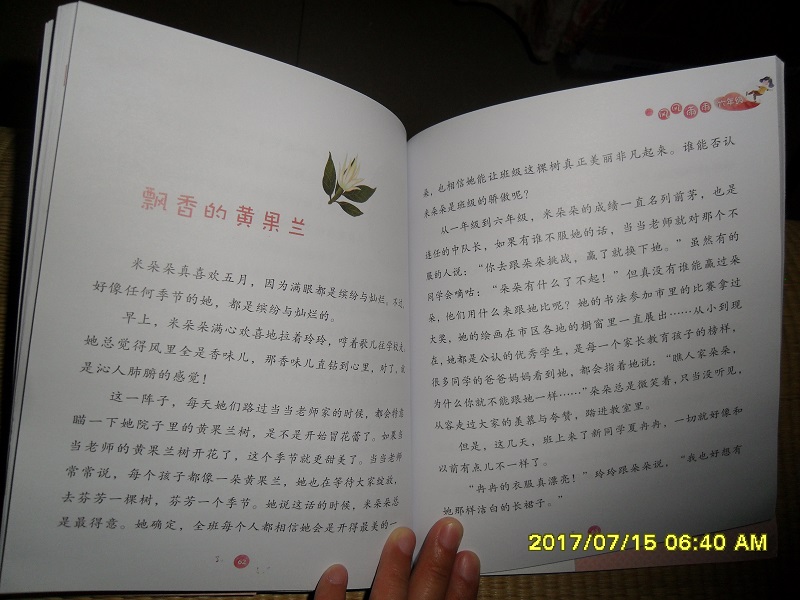 飘香的黄果兰
米朵朵真喜欢五月，因为满眼都是缤纷与灿烂。不过
好像任何季节的她，都是缤纷与灿烂的。
早上，米朵朵满心欢喜地拉着玲玲，哼着歌儿往学校走，
她总觉得风里全是香味儿，那香味儿直钻到心里，对了，就
是沁人肺腑的感觉！
这一阵子，每天她们路过当当老师家的时候，都会特意
瞄一下她院子里的黄果兰树，是不是开始冒花蕾了。如果当
当老师的黄果兰树开花了，这个季节就更甜美了。当当老师
常常说，每个孩子都像一朵黄果兰，她也在等待大家绽放，
去芬芳一棵树，芬芳一个季节。她说这话的时候，米朵朵总
是最得意。她确定，全班每个人都相信她会是开得最美的一
62
闪闪 雨雨 六年级
朵，也相信她能让班级这棵树真正美丽非凡起来。谁能否认
米朵朵是班级的骄傲呢？
从一年级到六年级，米朵朵的成绩一直名列前茅，也是
连任的中队长，如果有谁不服她的话，当当老师就对那个不
服的人说：“你去跟朵朵挑战，赢了就换下她。”虽然有的
同学会嘀咕：“朵朵有什么了不起！”但真没有谁能赢过朵
朵，他们用什么来跟她比呢？她的书法参加市里的比赛拿过
大奖，她的绘画在市区各地的橱窗里一直展出……从小到现
在，她都是公认的优秀学生，是每一个家长教育孩子的榜样，
很多同学的爸爸妈妈看到她，都会指着她说：“瞧人家朵朵，
为什么你就不能跟她一样……”朵朵总是微笑着，只当没听见，
从容走过大家的羡慕与夸赞，踏进教室里。
但是，这几天，班上来了新同学夏冉冉，一切就好像和
以前有点儿不一样了。
“冉冉的衣服真漂亮！”玲玲跟朵朵说，“我也好想有
她那样洁白的长裙子。”
2017/07/15 06:40 AM